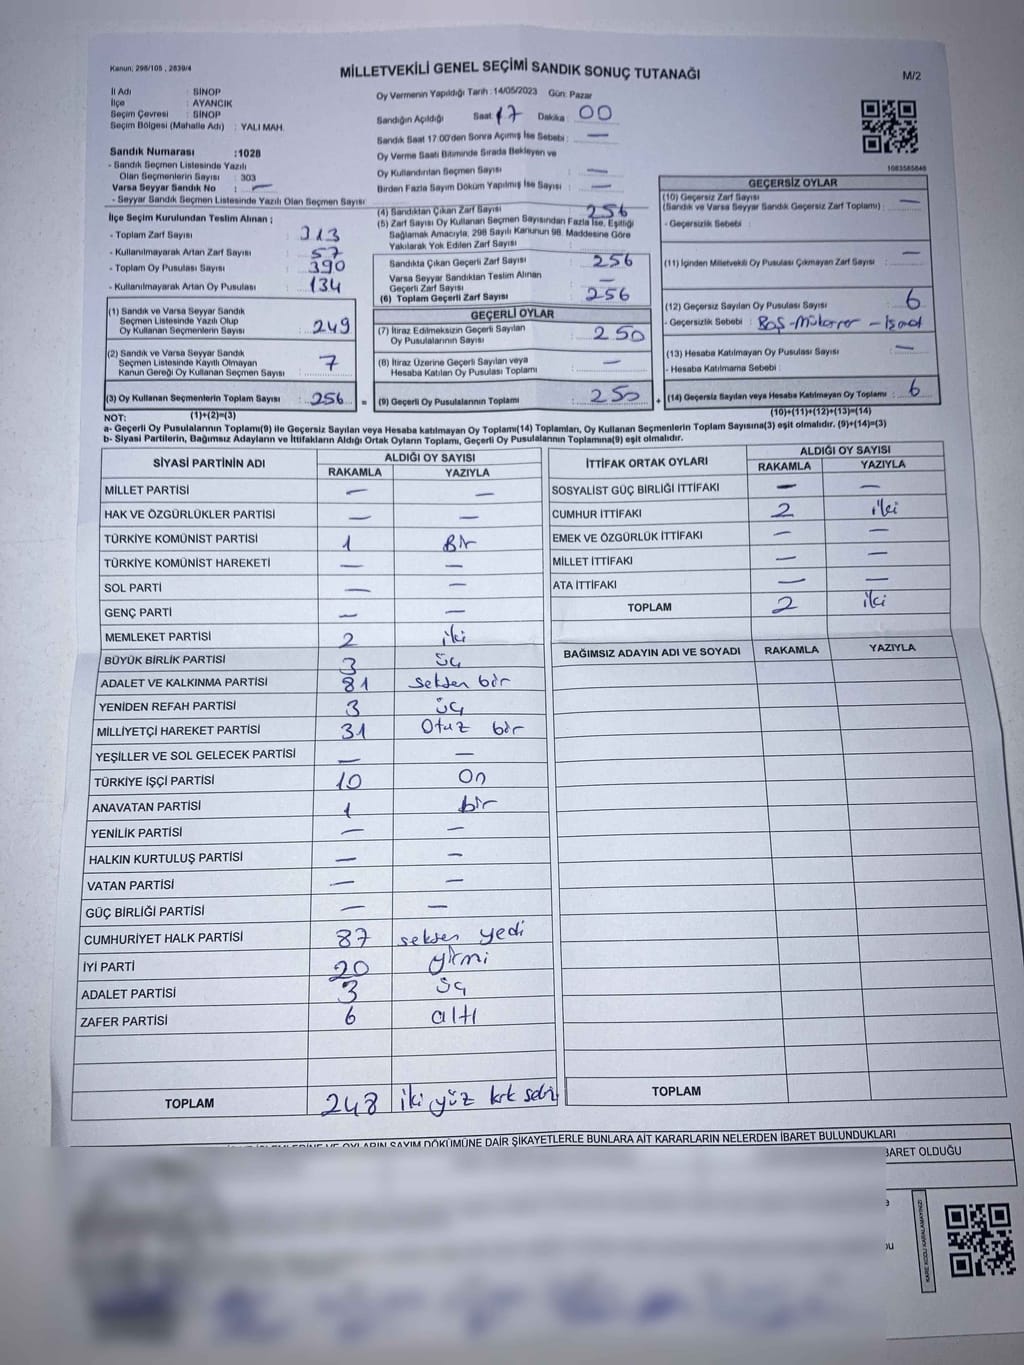 Kanun, 298/105 , 2839/4
MİLLETVEKİLİ GENEL SEÇİMİ SANDIK SONUÇ TUTANAĞI
M/2
İl Adı : SİNOP
İlçe : AYANCIK
Seçim Çevresi : SİNOP
Seçim Bölgesi (Mahalle Adı) : YALI MAH.
Oy Vermenin Yapıldığı Tarih : 14/05/2023 Gün: Pazar
Sandığın Açıldığı Saat : 17 Dakika : 00
Sandık Saat 17:00'den Sonra Açılmış İse Sebebi : —
Oy Verme Saati Bitiminde Sırada Bekleyen ve
Oy Kullandırılan Seçmen Sayısı : —
Birden Fazla Sayım Döküm Yapılmış İse Sayısı : —
Sandık Numarası :1028
- Sandık Seçmen Listesinde Yazılı
Olan Seçmenlerin Sayısı : 303
Varsa Seyyar Sandık No : —
- Seyyar Sandık Seçmen Listesinde Yazılı Olan Seçmen Sayısı
1083585845
İlçe Seçim Kurulundan Teslim Alınan ;
- Toplam Zarf Sayısı : 313
- Kullanılmayarak Artan Zarf Sayısı : 57
- Toplam Oy Pusulası Sayısı : 390
- Kullanılmayarak Artan Oy Pusulası : 134
(1) Sandık ve Varsa Seyyar Sandık
Seçmen Listesinde Yazılı Olup
Oy Kullanan Seçmenlerin Sayısı : 249
(2) Sandık ve Varsa Seyyar Sandık
Seçmen Listesinde Kayıtlı Olmayan
Kanun Gereği Oy Kullanan Seçmen Sayısı : 7
(3) Oy Kullanan Seçmenlerin Toplam Sayısı : 256 =
(4) Sandıktan Çıkan Zarf Sayısı : 256
(5) Zarf Sayısı Oy Kullanan Seçmen Sayısından Fazla İse, Eşitliği
Sağlamak Amacıyla, 298 Sayılı Kanunun 98. Maddesine Göre
Yakılarak Yok Edilen Zarf Sayısı :
Sandıkta Çıkan Geçerli Zarf Sayısı : 256
Varsa Seyyar Sandıktan Teslim Alınan
Geçerli Zarf Sayısı : —
(6) Toplam Geçerli Zarf Sayısı : 256
GEÇERLİ OYLAR
(7) İtiraz Edilmeksizin Geçerli Sayılan
Oy Pusulalarının Sayısı : 250
(8) İtiraz Üzerine Geçerli Sayılan veya
Hesaba Katılan Oy Pusulası Toplamı : —
(9) Geçerli Oy Pusulalarının Toplamı : 250 +
GEÇERSİZ OYLAR
(10) Geçersiz Zarf Sayısı
(Sandık ve Varsa Seyyar Sandık Geçersiz Zarf Toplamı) : —
- Geçersizlik Sebebi :
(11) İçinden Milletvekili Oy Pusulası Çıkmayan Zarf Sayısı : —
(12) Geçersiz Sayılan Oy Pusulası Sayısı : 6
- Geçersizlik Sebebi : Boş-Mükerrer-İşaret
(13) Hesaba Katılmayan Oy Pusulası Sayısı : —
- Hesaba Katılmama Sebebi :
(14) Geçersiz Sayılan veya Hesaba Katılmayan Oy Toplamı : 6
NOT: (1)+(2)=(3) (10)+(11)+(12)+(13)=(14)
a- Geçerli Oy Pusulalarının Toplamı(9) ile Geçersiz Sayılan veya Hesaba katılmayan Oy Toplamı(14) Toplamları, Oy Kullanan Seçmenlerin Toplam Sayısına(3) eşit olmalıdır. (9)+(14)=(3)
b- Siyasi Partilerin, Bağımsız Adayların ve İttifakların Aldığı Ortak Oyların Toplamı, Geçerli Oy Pusulalarının Toplamına(9) eşit olmalıdır.
SİYASİ PARTİNİN ADI ALDIĞI OY SAYISI
RAKAMLA YAZIYLA
MİLLET PARTİSİ — —
HAK VE ÖZGÜRLÜKLER PARTİSİ — —
TÜRKİYE KOMÜNİST PARTİSİ 1 Bir
TÜRKİYE KOMÜNİST HAREKETİ — —
SOL PARTİ — —
GENÇ PARTİ — —
MEMLEKET PARTİSİ 2 iki
BÜYÜK BİRLİK PARTİSİ 3 üç
ADALET VE KALKINMA PARTİSİ 81 seksen bir
YENİDEN REFAH PARTİSİ 3 üç
MİLLİYETÇİ HAREKET PARTİSİ 31 Otuz bir
YEŞİLLER VE SOL GELECEK PARTİSİ — —
TÜRKİYE İŞÇİ PARTİSİ 10 On
ANAVATAN PARTİSİ 1 bir
YENİLİK PARTİSİ — —
HALKIN KURTULUŞ PARTİSİ — —
VATAN PARTİSİ — —
GÜÇ BİRLİĞİ PARTİSİ — —
CUMHURİYET HALK PARTİSİ 87 seksen yedi
İYİ PARTİ 20 yirmi
ADALET PARTİSİ 3 üç
ZAFER PARTİSİ 6 altı
TOPLAM 248 iki yüz kırk sekiz
İTTİFAK ORTAK OYLARI ALDIĞI OY SAYISI
RAKAMLA YAZIYLA
SOSYALİST GÜÇ BİRLİĞİ İTTİFAKI — —
CUMHUR İTTİFAKI 2 iki
EMEK VE ÖZGÜRLÜK İTTİFAKI — —
MİLLET İTTİFAKI — —
ATA İTTİFAKI — —
TOPLAM 2 iki
BAĞIMSIZ ADAYIN ADI VE SOYADI RAKAMLA YAZIYLA
TOPLAM
OYLARIN SAYIM DÖKÜMÜNE DAİR ŞİKAYETLERLE BUNLARA AİT KARARLARIN NELERDEN İBARET BULUNDUKLARI
BARET OLDUĞU
KARE KODU KARALAMAYINIZ!